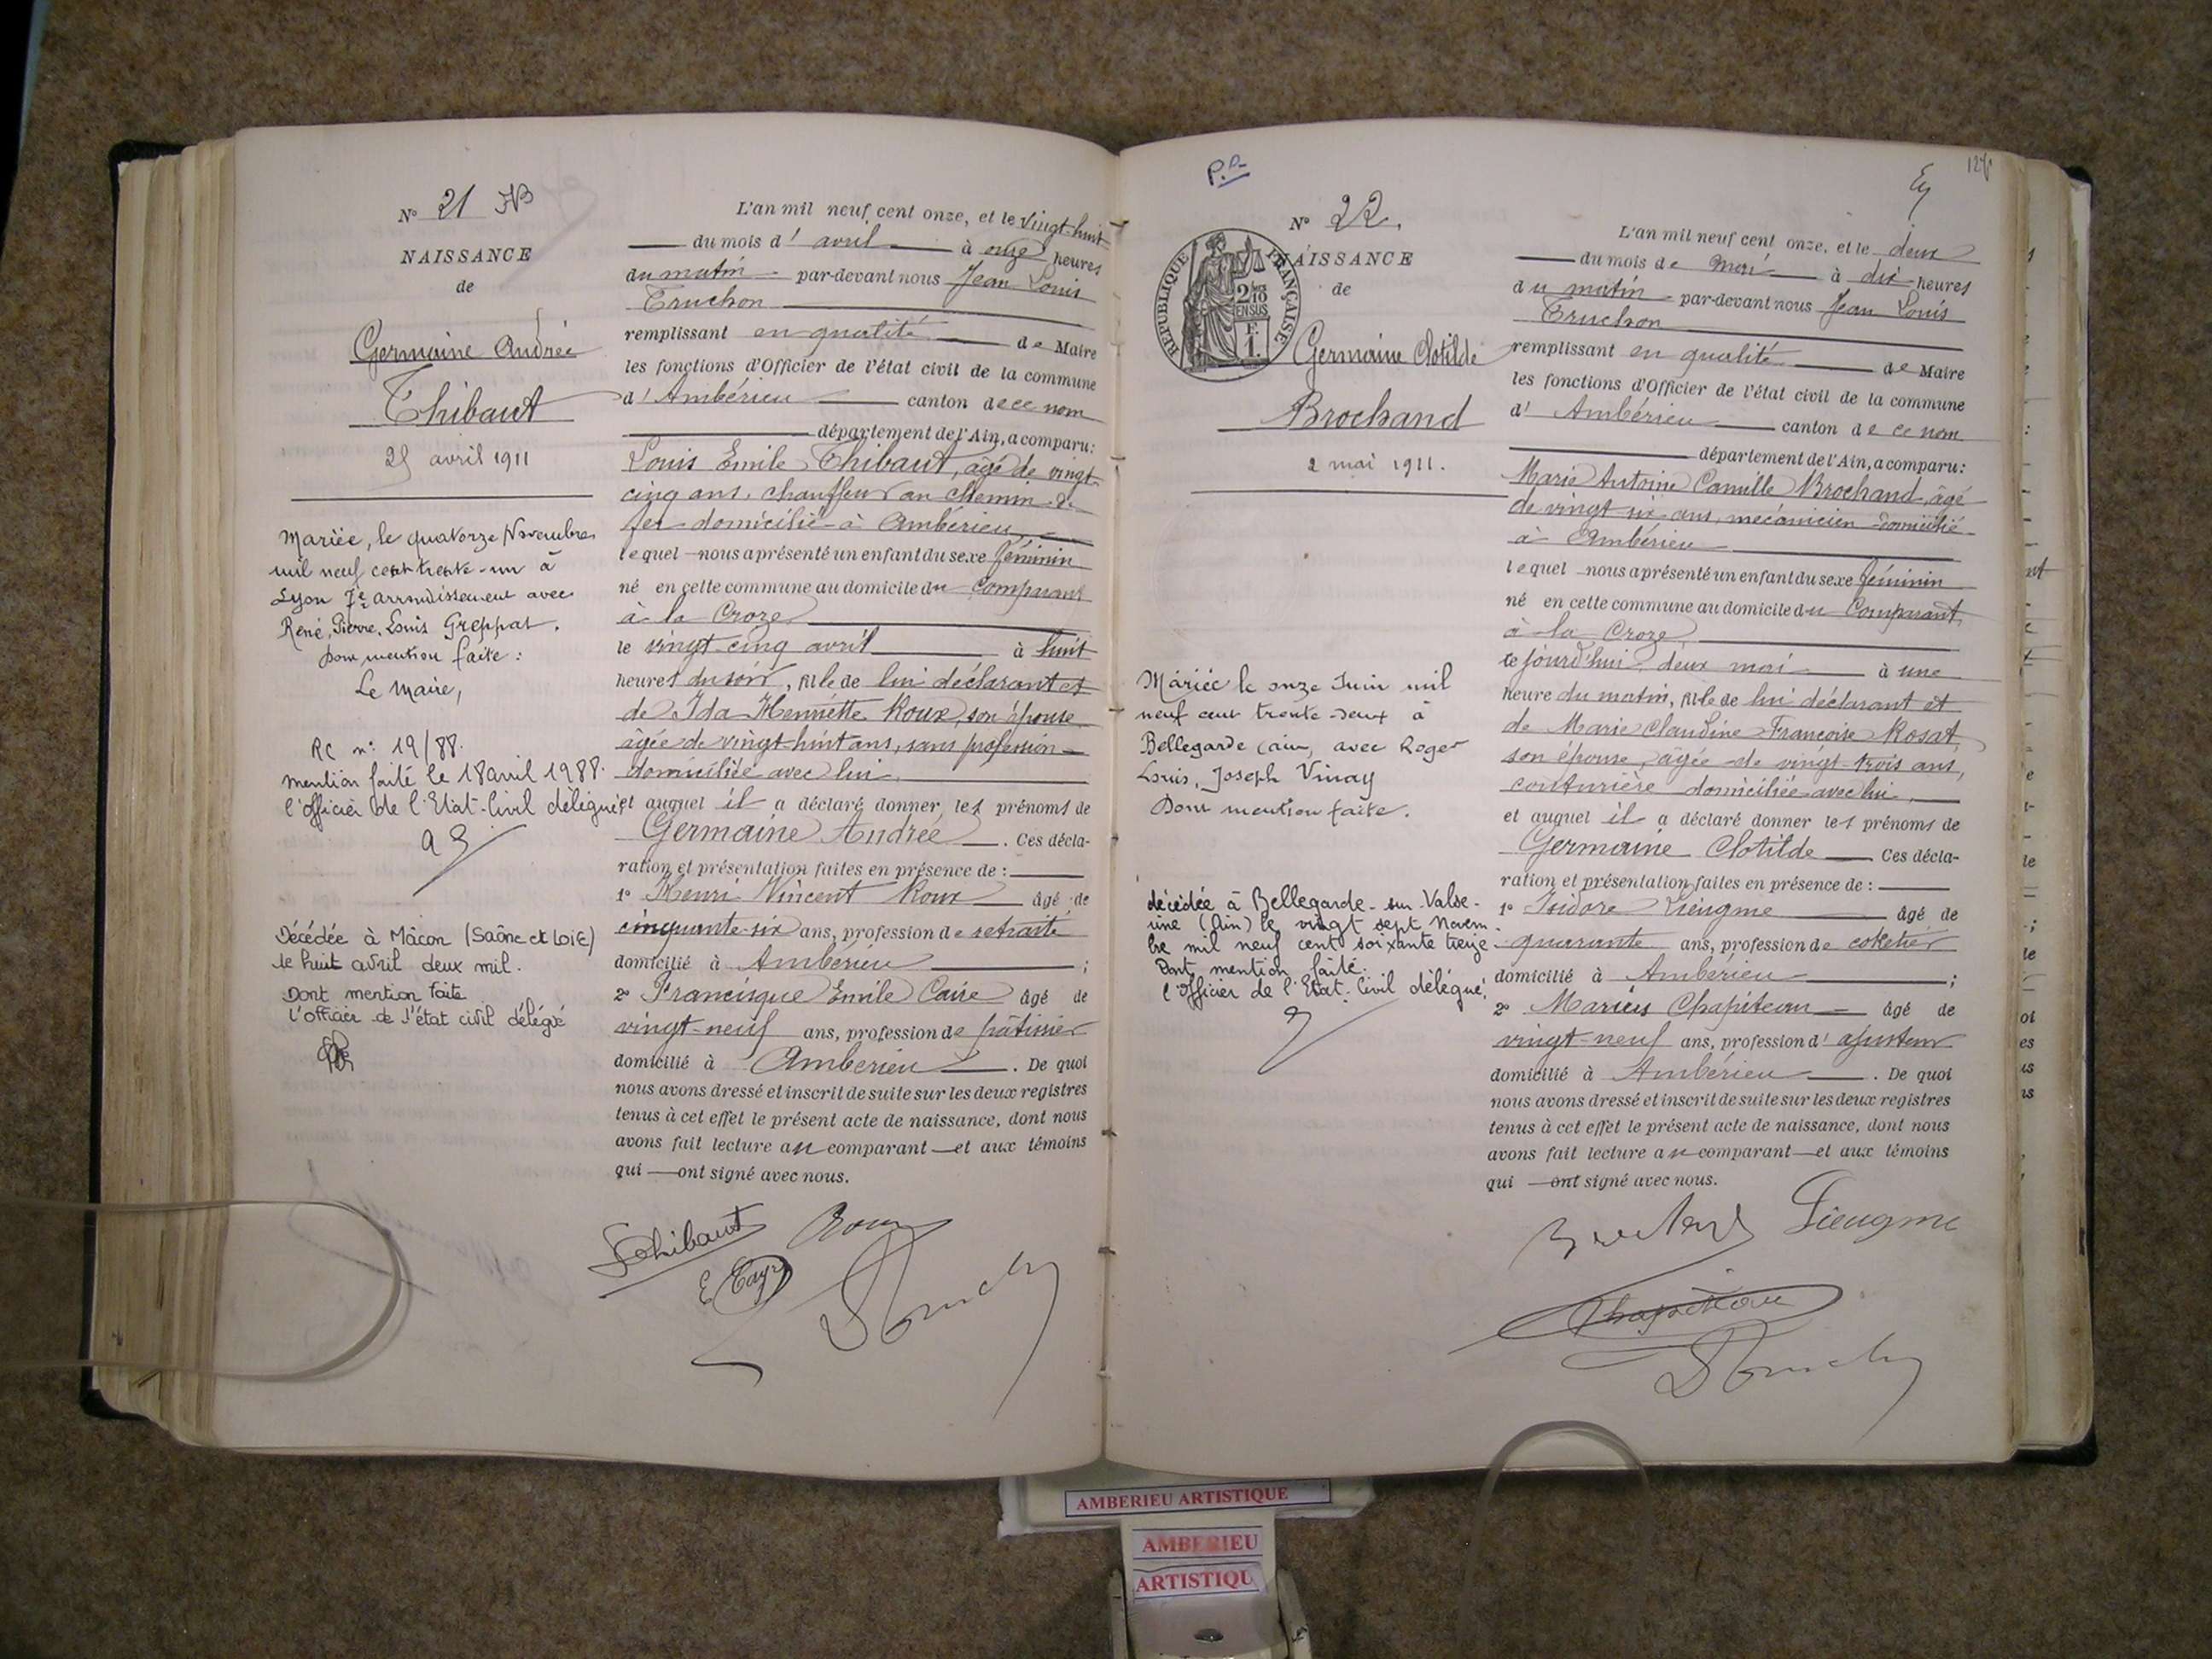 N° 21
NAISSANCE
de
Germaine Andrée
Thibaut
25 avril 1911
Mariée, le quatorze Novembre
mil neuf cent trente-un à
Lyon 7e arrondissement avec
René, Pierre, Louis Greppat.
pour mention faite :
Le Maire,
RC n: 19/88.
mention faite le 18 avril 1988.
l'officier de l'Etat-Civil délégué
Décédée à Mâcon (Saône et LOIE)
le huit avril deux mil.
Dont mention faite
l'officier de l'état civil délégué
L'an mil neuf cent onze, et le vingt-huit
du mois d' avril à onze heures
du matin par-devant nous Jean Louis
Truchon
remplissant en qualité de Maire
les fonctions d'Officier de l'état civil de la commune
d' Ambérieu canton de ce nom
département de l'Ain, a comparu:
Louis Emile Thibaut, âgé de vingt-
cinq ans, chauffeur au chemin de
fer domicilié à Ambérieu,
lequel nous a présenté un enfant du sexe féminin
né en cette commune au domicile du Comparant
à la Croze
le vingt-cinq avril à huit
heures du soir, fille de lui déclarant et
de Ida Henriette Roux, son épouse
âgée de vingt-huit ans, sans profession
domiciliée avec lui
et auquel il a déclaré donner les prénoms de
Germaine Andrée. Ces décla-
ration et présentation faites en présence de :
1° Henri Vincent Roux âgé de
cinquante-six ans, profession de retraité
domicilié à Ambérieu ;
2° Francisque Emile Caire âgé de
vingt-neuf ans, profession de pâtissier
domicilié à Ambérieu. De quoi
nous avons dressé et inscrit de suite sur les deux registres
tenus à cet effet le présent acte de naissance, dont nous
avons fait lecture au comparant et aux témoins
qui ont signé avec nous.
LThibaut Roux
P.P.
N° 22.
NAISSANCE
de
RÉPUBLIQUE FRANÇAISE
2/10 EN SUS
F. 1.
Germaine Clotilde
Brochand
2 mai 1911.
Mariée le onze Juin mil
neuf cent trente-deux à
Bellegarde (ain, avec Roger
Louis, Joseph Vinay
Dont mention faite.
décédée à Bellegarde-sur-Valse-
rine (Ain) le vingt sept Novem-
bre mil neuf cent soixante treize
Dont mention faite.
l'officier de l'Etat-Civil délégué.
L'an mil neuf cent onze, et le deux
du mois de mai à dix heures
du matin par-devant nous Jean Louis
Truchon
remplissant en qualité de Maire
les fonctions d'Officier de l'état civil de la commune
d' Ambérieu canton de ce nom
département de l'Ain, a comparu:
Marie Antoine Camille Brochand, âgé
de vingt six ans, mécanicien domicilié
à Ambérieu
lequel nous a présenté un enfant du sexe féminin
né en cette commune au domicile du Comparant,
à la Croze
le jourd'hui deux mai à une
heure du matin, fille de lui déclarant et
de Marie Claudine Françoise Rosat,
son épouse, âgée de vingt-trois ans,
couturière domiciliée avec lui,
et auquel il a déclaré donner les prénoms de
Germaine Clotilde Ces décla-
ration et présentation faites en présence de :
1° Isidore Lieugme âgé de
quarante ans, profession de coketier
domicilié à Ambérieu ;
2° Marius Chapiteau âgé de
vingt-neuf ans, profession d' ajusteur
domicilié à Ambérieu. De quoi
nous avons dressé et inscrit de suite sur les deux registres
tenus à cet effet le présent acte de naissance, dont nous
avons fait lecture au comparant et aux témoins
qui ont signé avec nous.
Lieugme
Chapiteau
AMBERIEU ARTISTIQUE
AMBERIEU
ARTISTIQU